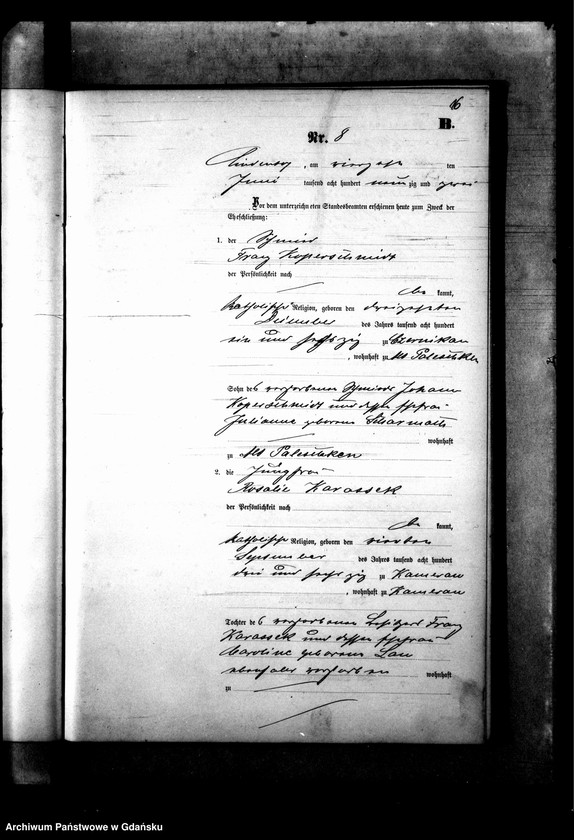 16
B.
Nr. 8
Lindenberg, am vierzehn ten
Juni tausend acht hundert neun zig und zwei
Vor dem unterzeichneten Standesbeamten erschienen heute zum Zweck der
Eheschließung:
1. der Schmied
Franz Koperschmidt
der Persönlichkeit nach
be kannt,
katholischer Religion, geboren den dreizehnten
Dezember des Jahres tausend acht hundert
ein und sechzig zu Czernikau
, wohnhaft zu Alt Paleschken
Sohn des verstorbenen Schmieds Johann
Koperschmidt und dessen Ehefrau
Julianne geborene
wohnhaft
zu Alt Paleschken
2. die Jungfrau
Rosalie Karassek
der Persönlichkeit nach
be kannt,
katholischer Religion, geboren den vierten
September des Jahres tausend acht hundert
drei und sechzig zu Kamerau
, wohnhaft zu Kamerau
Tochter des verstorbenen Besitzers Franz
Karassek und dessen Ehefrau
Caroline geborene Lau
ebenfalls verstorben wohnhaft
zu
Archiwum Państwowe w Gdańsku